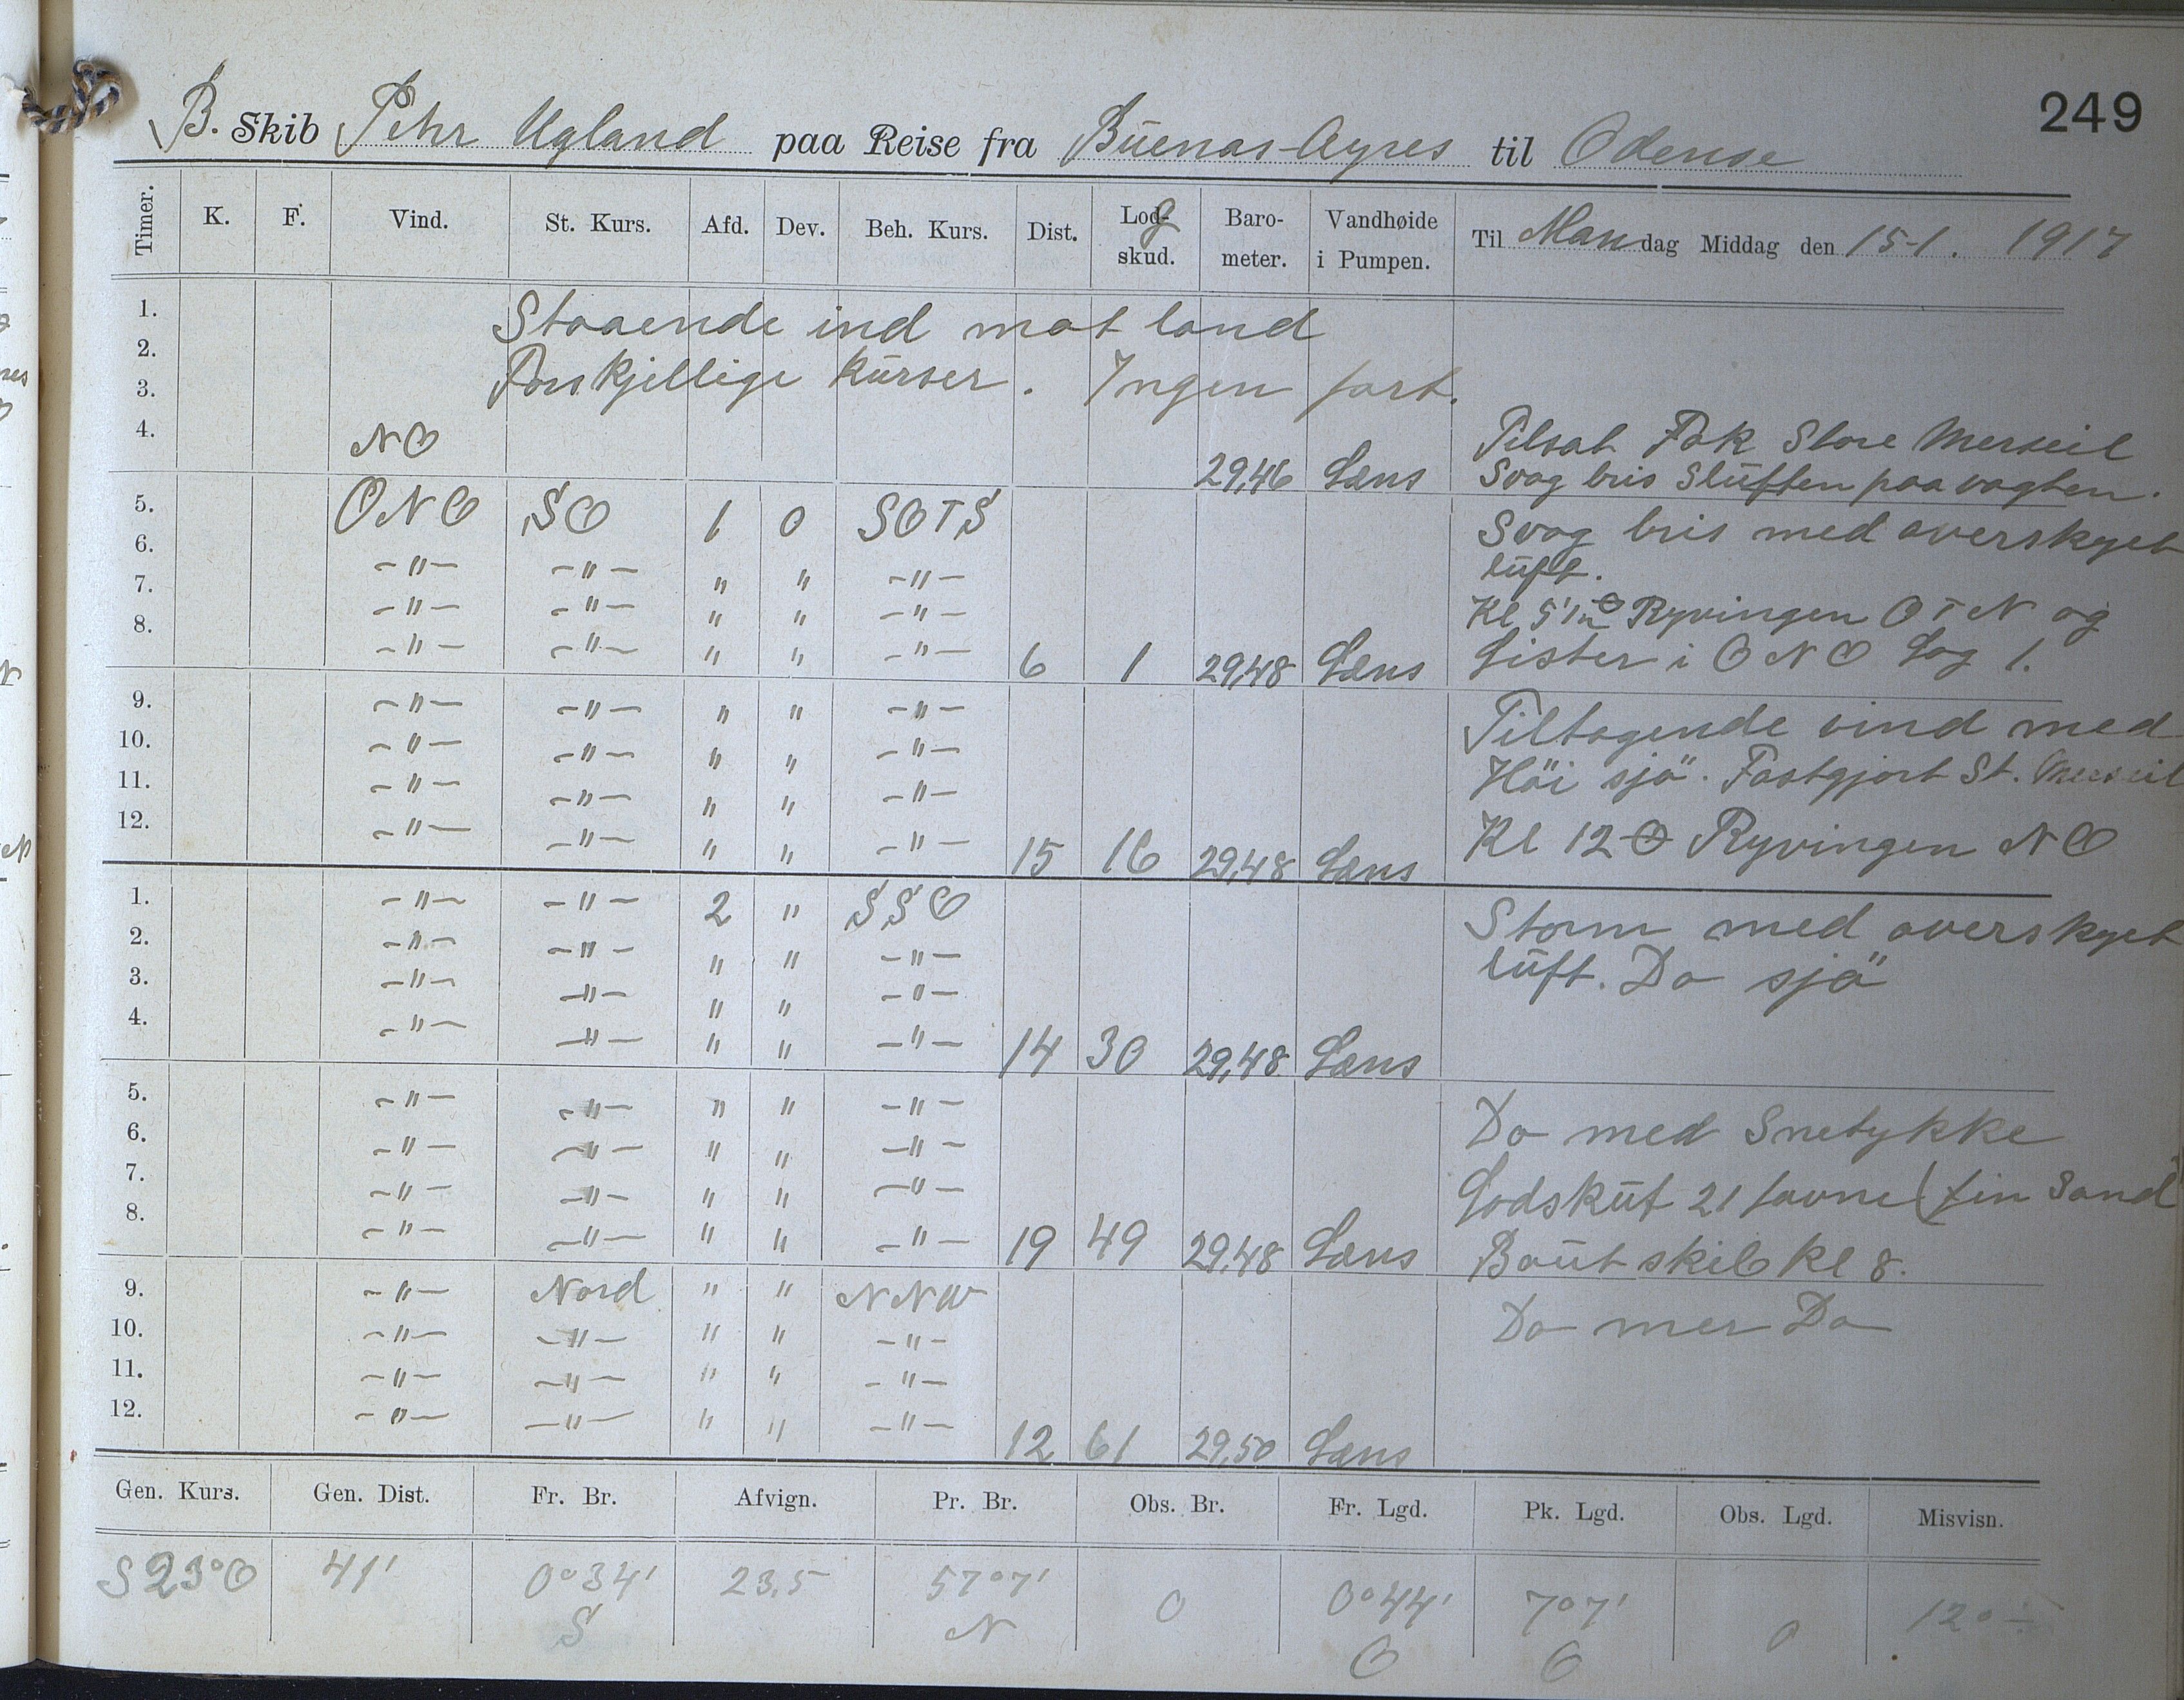 249
B. Skib Pehr Ugland paa Reise fra Buenas-Ayres til Odense
Timer. K. F. Vind. St. Kurs. Afd. Dev. Beh. Kurs. Dist. Log skud. Baro- meter. Vandhøide i Pumpen. Til Mandag Middag den 15-1. 1917
1. Staaende ind mot land
2.
3. Forskjellige kurser. Ingen fart.
4. NO 29,46 Læns
Tilsat Fok Store Merseil
Svag bris Sluften paa vagten.
5. ONO SO 1 0 SOTS
6. -"- -"- " " -"-
7. -"- -"- " " -"-
8. -"- -"- " " -"- 6 1 29,48 Læns
Svag bris med overskyet
luft.
Kl 5 Ryvingen OTN og
Lister i ONO Log 1.
9. -"- -"- " " -"-
10. -"- -"- " " -"-
11. -"- -"- " " -"-
12. -"- -"- " " -"- 15 16 29,48 Læns
Tiltagende vind med
Höi sjö. Fastgjort St. Merseil
Kl 12 Ryvingen NO
1. -"- -"- 2 " SSO
2. -"- -"- " " -"-
3. -"- -"- " " -"-
4. -"- -"- " " -"- 14 30 29,48 Læns
Storm med overskyet
luft. Do sjö
5. -"- -"- " " -"-
6. -"- -"- " " -"-
7. -"- -"- " " -"-
8. -"- -"- " " -"- 19 49 29,48 Læns
Do med Snetykke
Lodskut 21 favne (fin Sand
Baut skib kl 8.
9. -"- Nord " " NNW
10. -"- -"- " " -"-
11. -"- -"- " " -"-
12. -"- -"- " " -"- 12 61 29,50 Læns
Do mer Do
Gen. Kurs. Gen. Dist. Fr. Br. Afvign. Pr. Br. Obs. Br. Fr. Lgd. Pk. Lgd. Obs. Lgd. Misvisn.
S 23° O 41' 0° 34' S 23,5 57° 7' N 0 0° 44' O 7° 7' O 0 12° ÷